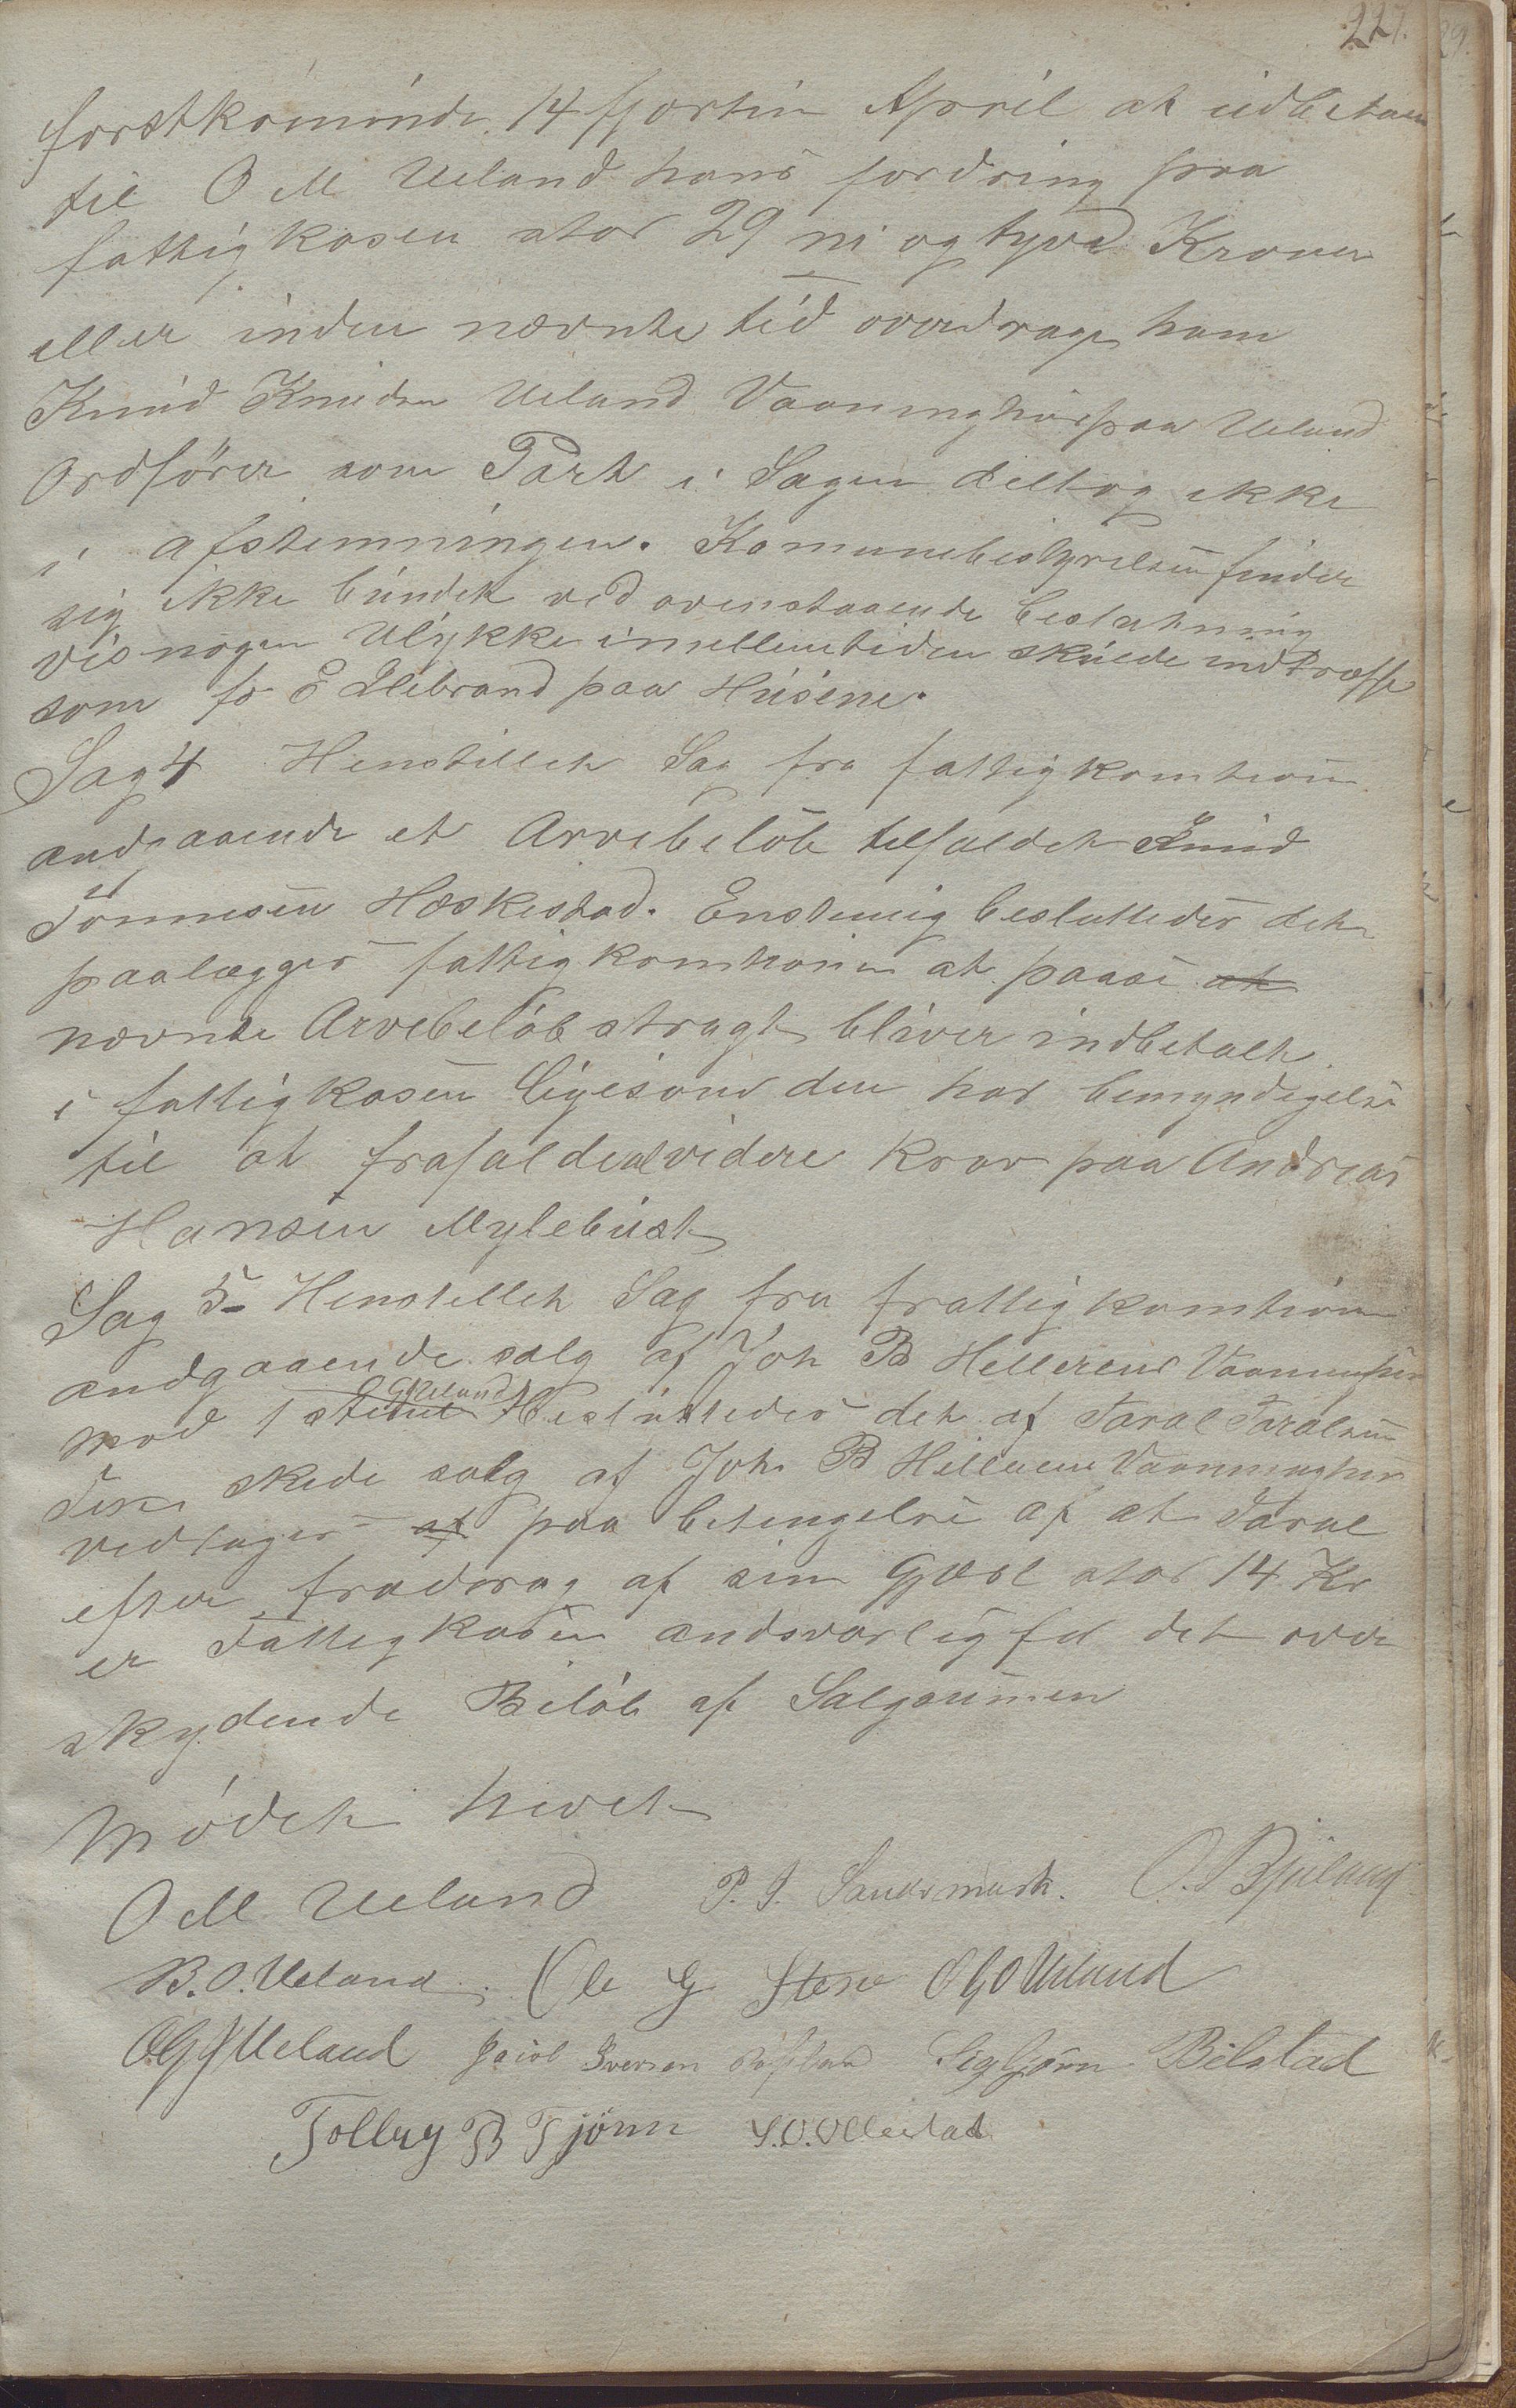 227.
forstkominde 14 fjortin April at udbetale
til O M Ueland hans fordring paa
fattigkasen stor 29 ni og tyve Kroner
eller inden nævnte tid overdrage ham
Knud Knudsen Ueland Vaaninghus paa Ueland
Ordförer som Part i Sagen deltog ikke
i afstemningen. Komunebestyrelsen finder
sig ikke bundet ved ovenstaaende beslutning
vis nogen Ulykke imellemtiden skulde indtræffe
som fo E Ildebrand paa Husene.
Sag 4 Henstillet Sag fra fattigkomtion
andgaaende et Arvebelöb tilfaldet Knud
Tönnesen Hæskestad. Enstemig besluttedes det
paalægges fattigkomtionen at paase at
nævnte Arvebelöb stragt bliver indbetalt
i fattigkasen ligesom den har bemyndigelse
til at frafalde al videre krav paa Andreas
Hansen Myklebust
Sag 5 Henstillet Sag fra frattigkomtion
andgaaende salg af Joh B Hellerens Vaaninghus
mod 1 stemme Besluttedes det af Taral Taralsen
skede salg af Joh B Helleren Vaaninghus
vedtages af paa betingelse af at Taral
efter fradrag af sin Gjæld stor 14 Kr
er Fattigkasen andsvarlig for det over
skydende Belöb af Salgsumen
Mödet hævet
O M Ueland P. J. Sandsmark. O. Bjuland
B. O. Ueland. Ole G Stene O G O Ueland
O G J Ueland Jacob Iversen Röfsland Sigbjörn Bilstad
Tolleg B Tjörn S. O. Ollestad